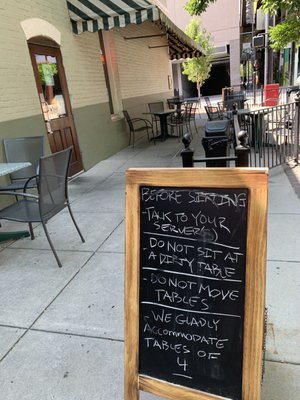 BEFORE SITTING
TALK TO YOUR
SERVER(S)
. DO NOT SIT AT
A DIRTY TABLE
- DO NOT MOVE
TABLES
- WE GLADLY
ACCOMMODATE
TABLES OF
4